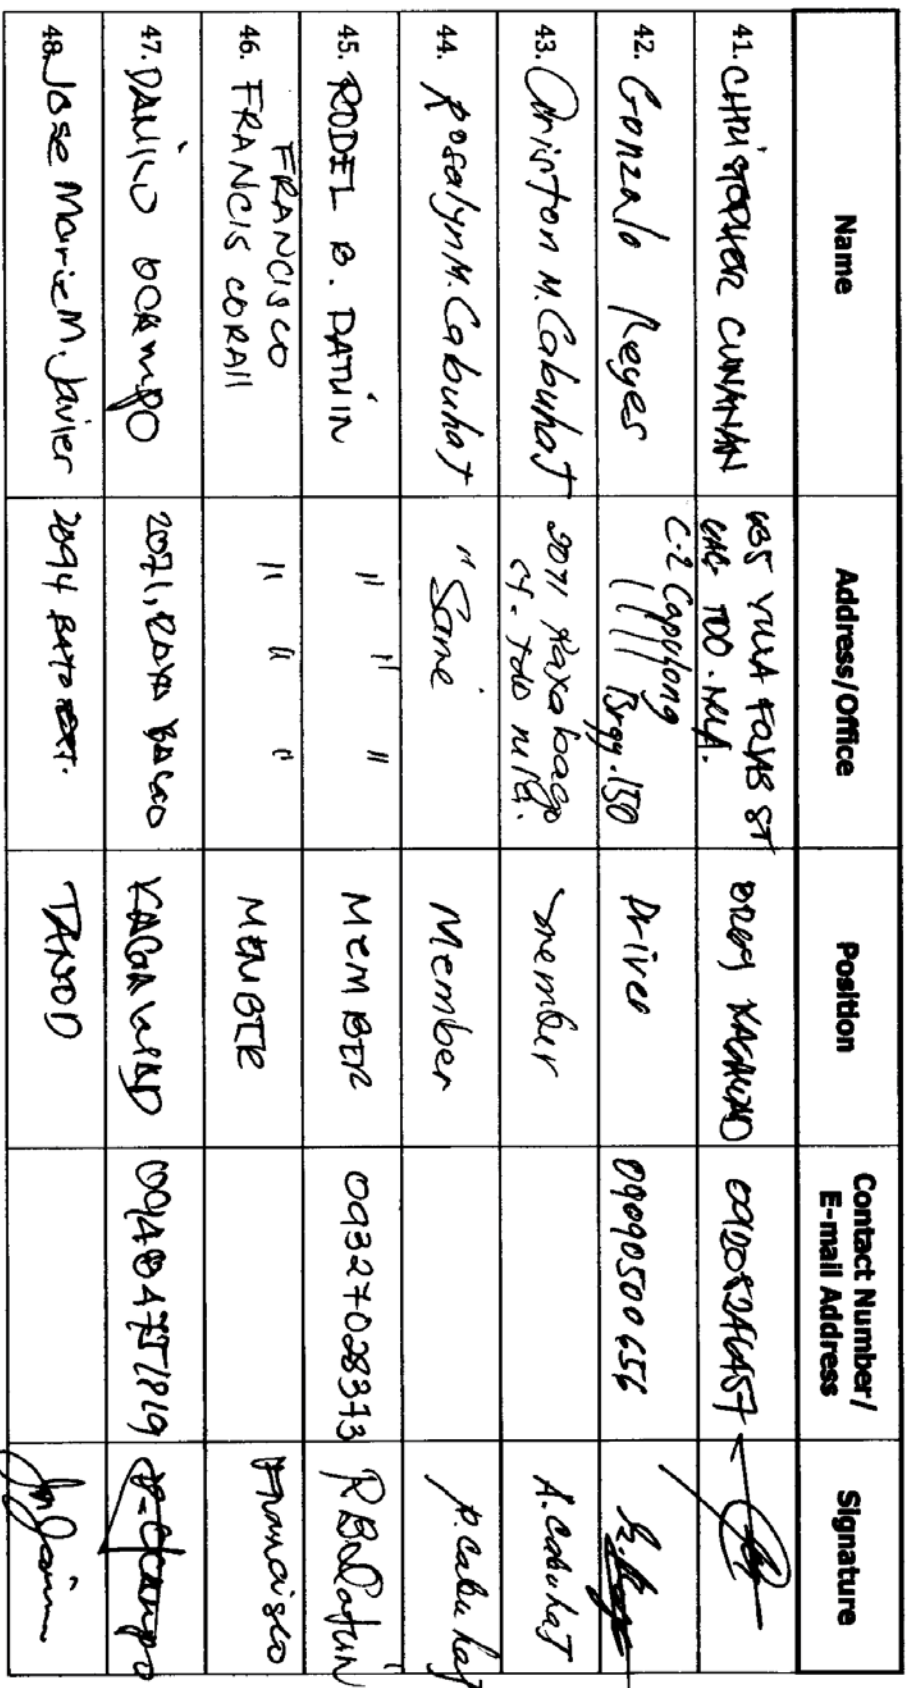 Name Address/Office Position Contact Number/ E-mail Address Signature
41. CHRISTOPHER CUNANAN ST BRGY KAGAWAD
42. Gonzalo Reyes C-2 Capulong Brgy. 150 Driver 09090500656
43. Ariston M. Cabuhat 2071 member A. Cabuhat
44. Rosalyn M. Cabuhat " Same Member R. Cabuhat
45. RODEL B. DATUIN " " " MEMBER 09327028313 RBDatuin
46. FRANCISCO
FRANCIS CORAll " " " MEMBER Francisco
47. DANILO OCAMPO 2071, RAXA BAGO KAGAWAD D. Ocampo
48. Jose Marie M. Javier 2094 BATO EXT. TANOD